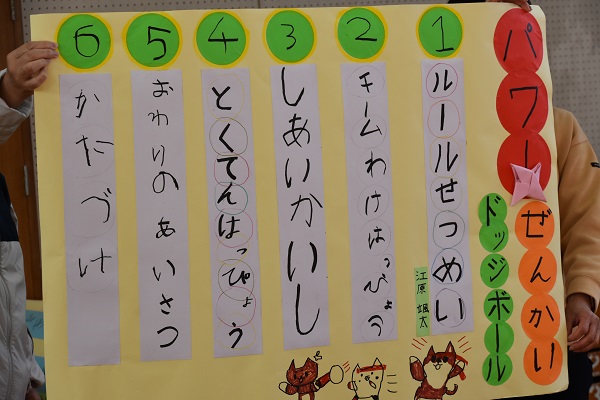 パワー
ぜんかい
ドッジボール
1
ルールせつめい
江原 颯太
2
チームわけはっぴょう
3
しあいかいし
4
とくてんはっぴょう
5
おわりのあいさつ
6
かたづけ